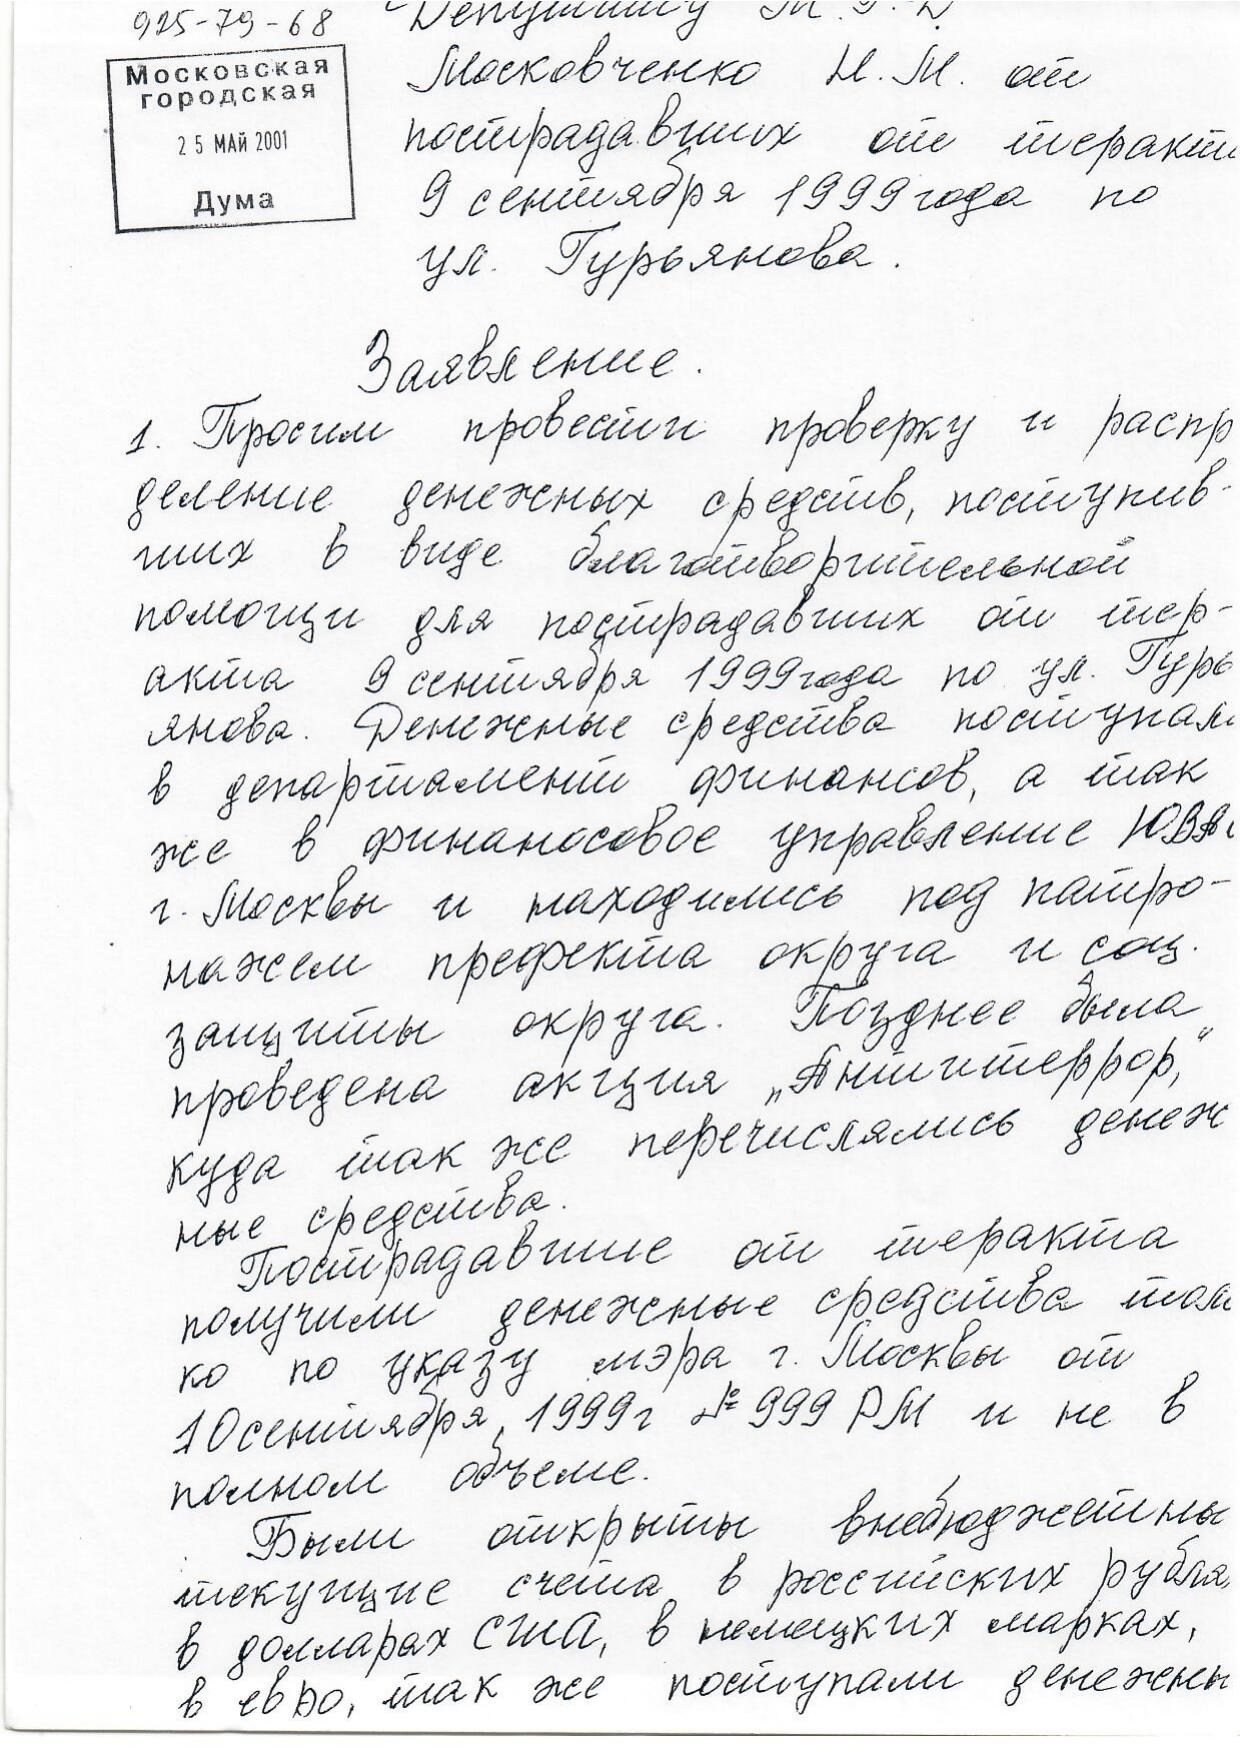 925-79-68
Депутату М.Г.Д
Московская
городская
25 МАЙ 2001
Дума
Московченко Н.М. от
пострадавших от теракт
9 сентября 1999 года по
ул. Гурьянова.
Заявление.
1. Просим провести проверку и распр
деление денежных средств, поступив-
ших в виде благотворительной
помощи для пострадавших от тер-
акта 9 сентября 1999 года по ул. Гурь
янова. Денежные средства поступал
в департамент финансов, а так
же в финаносовое управление ЮВА
г. Москвы и находились под патро-
нажем префекта округа и соц.
защиты округа. Позднее была
проведена акция „Антитеррор,“
куда так же перечислялись денеж
ные средства.
Пострадавшие от теракта
получили денежные средства тол
ко по указу мэра г. Москвы от
10 сентября, 1999г № 999 РМ и не в
полном объеме.
Были открыты внебюджетны
текущие счета в российских рубля
в долларах США, в немецких марках,
в евро, так же поступали денежны